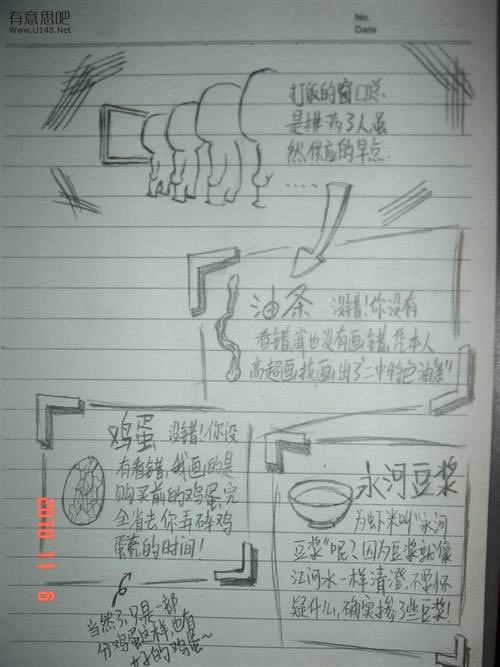 有意思吧
www.U148.Net
No.
Date
打饭的窗口总
是挤满了人虽
然供应的早点
......
油条 没错!你没有
看错,我也没有画错,凭本人
高超画技画出了"二中特色油条"
鸡蛋 没错!你没
有看错,我画的是
购买前的鸡蛋,完
全省去你弄碎鸡
蛋壳的时间!
当然不只是一部
分鸡蛋这样,也有
好的鸡蛋~
永河豆浆
为虾米叫"永河
豆浆"呢?因为豆浆就像
江河水一样清澄,不要怀
疑什么,确实掺了些豆浆!
2010 11 9